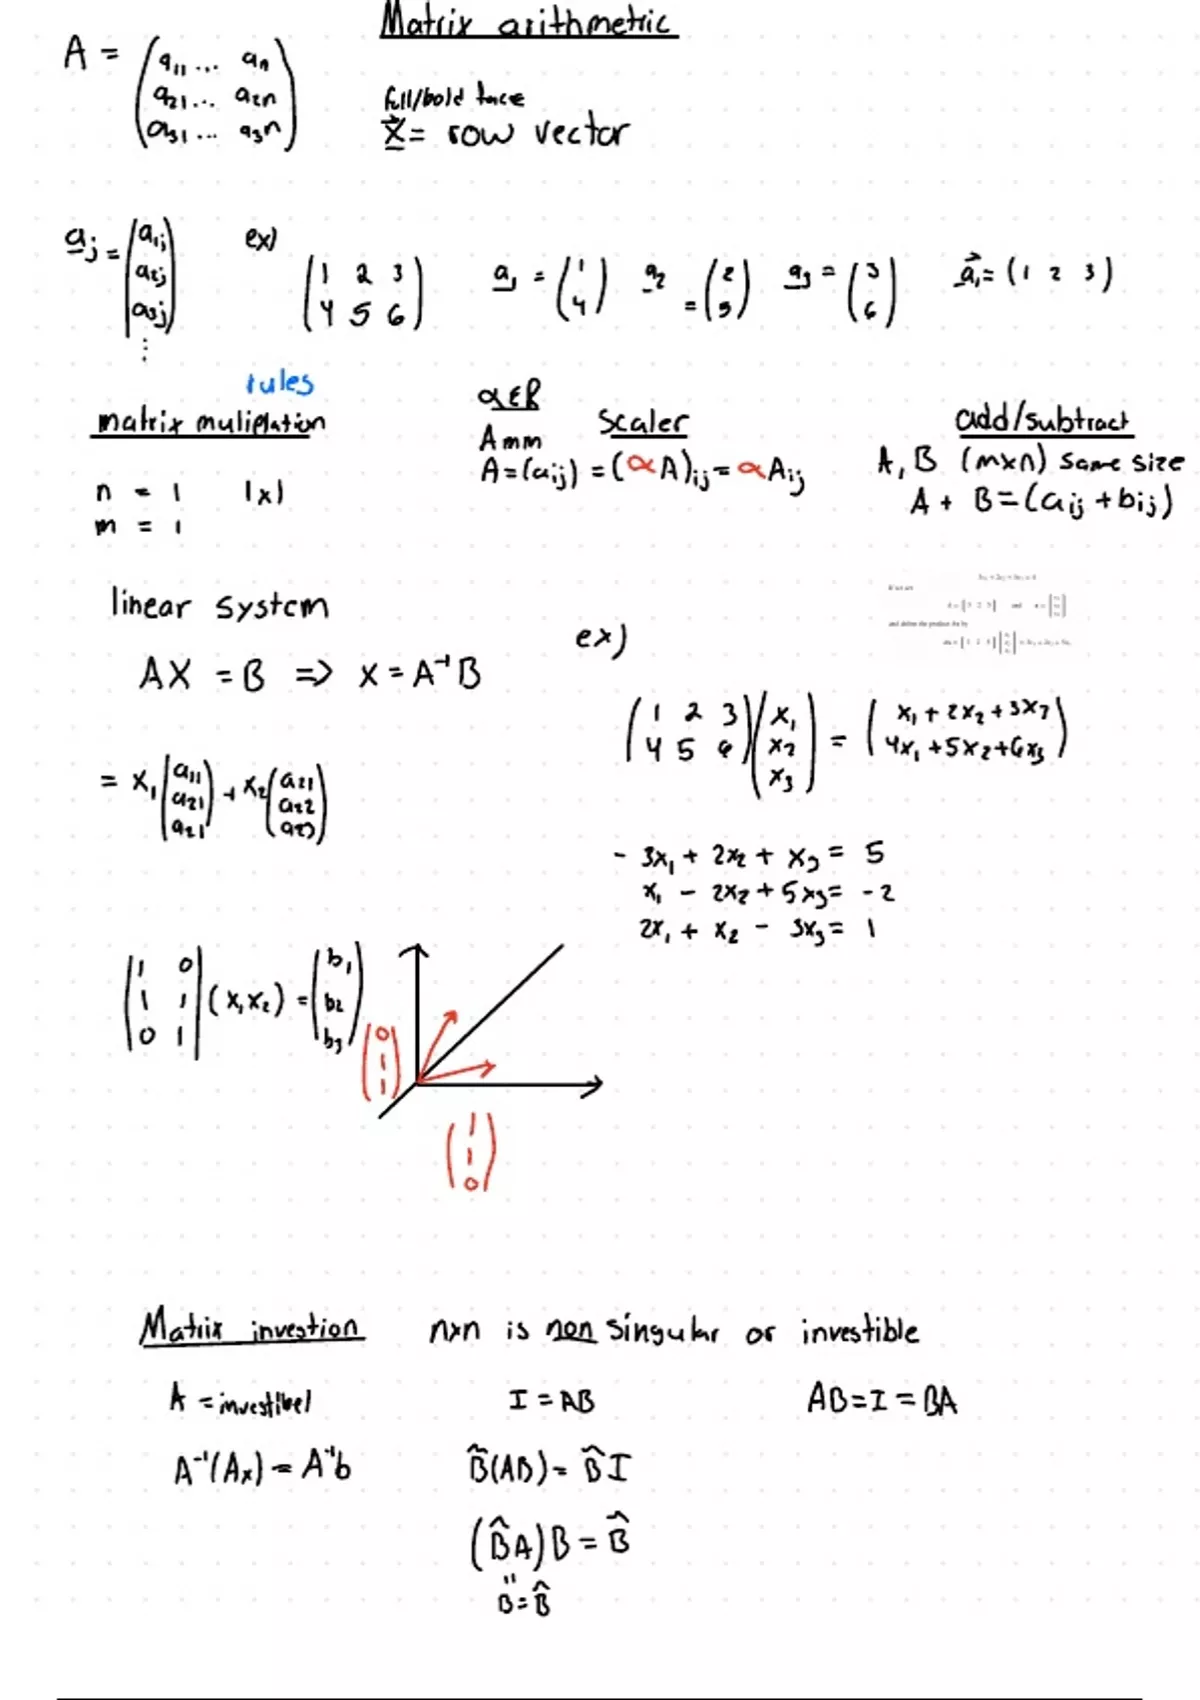 Matrix arithmetric
A = (a11 ... an
a21 ... a2n
a31 ... a3n)
full/bold face
x⃗ = row vector
aj = (a1j
a2j
a3j
⋮
ex)
(1 2 3
4 5 6)
a1 = (1
4)
a2 = (2
5)
a3 = (3
6)
a⃗1 = (1 2 3)
rules
matrix muliplation
n = 1 1x1
m = 1
α∈R
Amm
Scaler
A = (aij) = (αA)ij = αAij
add/subtract
A, B (m×n) same size
A + B = (aij + bij)
linear system
AX = B ⇒ x = A⁻¹B
= x1(a11
a21
a21) + x2(a21
a22
a23)
ex)
(1 2 3
4 5 6)(x1
x2
x3) = (x1 + 2x2 + 3x3
4x1 + 5x2 + 6x3)
- 3x1 + 2x2 + x3 = 5
x1 - 2x2 + 5x3 = -2
2x1 + x2 - 3x3 = 1
|1 0
1 1
0 1| (x1 x2) = (b1
b2
b3)
(0
1
1)
(1
1
0)
Matrix investion n×n is non singular or investible
A = investibel I = AB AB = I = BA
A⁻¹(Ax) = A⁻¹b B̂(AB) = B̂I
(B̂A)B = B̂
"
B = B̂